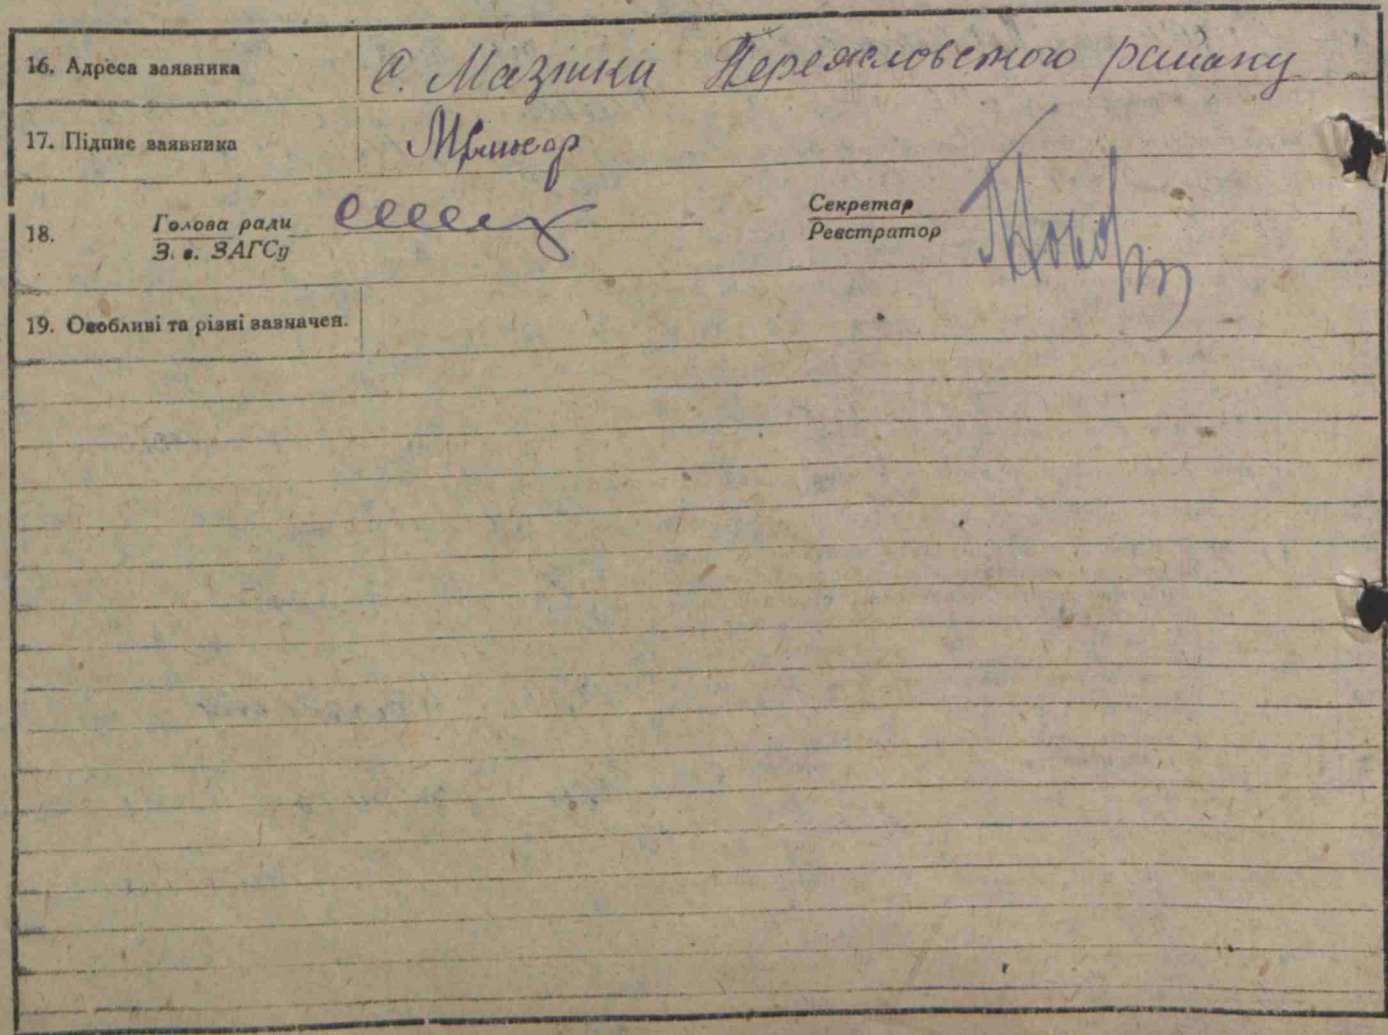 16. Адреса заявника с. Мазінки Переясловського району
17. Підпис заявника
18. Голова ради Секретар
З. в. ЗАГСу Реєстратор
19. Особливі та різні зазначен.